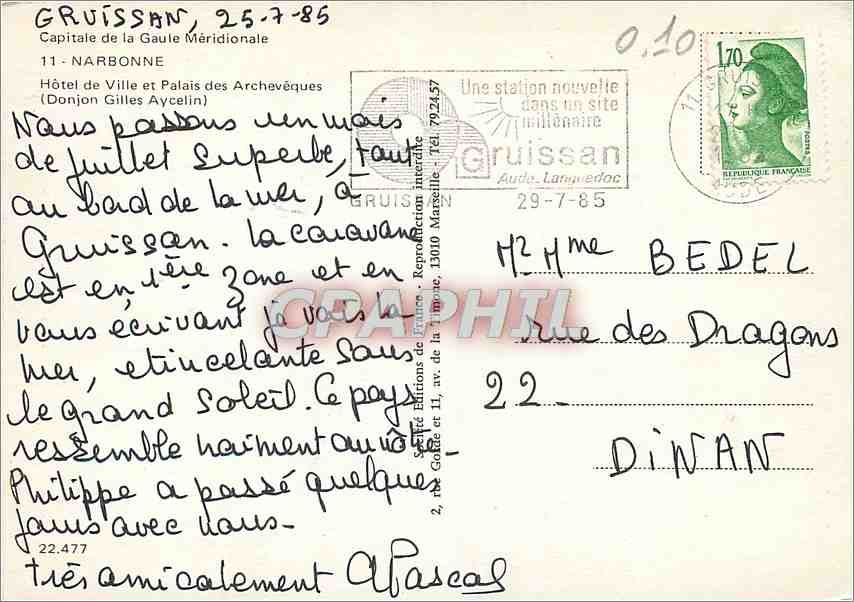 GRUISSAN, 25-7-85
Capitale de la Gaule Méridionale
11 - NARBONNE
Hôtel de Ville et Palais des Archevêques
(Donjon Gilles Aycelin)
Nous passons un mois
de juillet superbe, tout
au bord de la mer, à
Gruissan. La caravane
est en 1ère zone et en
vous écrivant je vois la
mer, etincelante sous
le grand soleil. Ce pays
ressemble vraiment au vôtre_
Philippe a passé quelques
jours avec nous_
22.477
très amicalement APascal
Société Editions de France - Reproduction interdite
2, rue Gorde et 11, av. de la Timone, 13010 Marseille - Tél. 79.24.57
Une station nouvelle
dans un site
millénaire
Gruissan
Aude_Languedoc
GRUISSAN 29-7-85
0.10
1,70
POSTES
REPUBLIQUE FRANÇAISE
11 GRUIS
AUDE
Mr Mme BEDEL
rue des Dragons
22_
DINAN
CPAPHIL